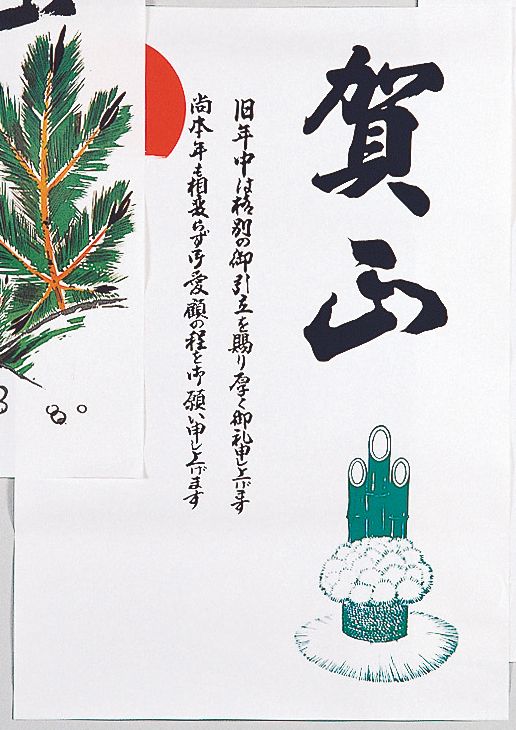 賀正
旧年中は格別の御引立を賜り厚く御礼申し上げます
尚本年も相変らず御愛顧の程を御願い申し上げます